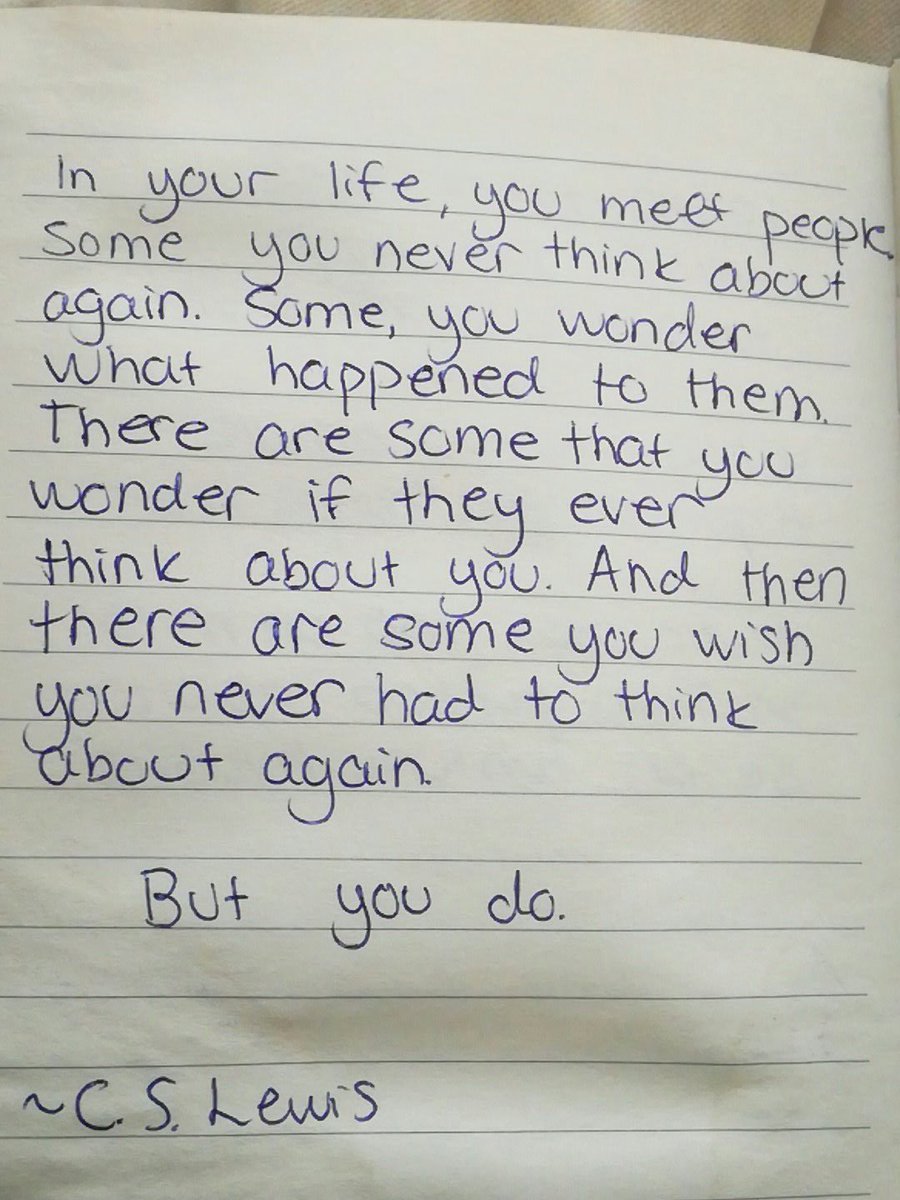 In your life, you meet people.
Some you never think about
again. Some, you wonder
what happened to them.
There are some that you
wonder if they ever
think about you. And then
there are some you wish
you never had to think
about again.
But you do.
~C.S. Lewis